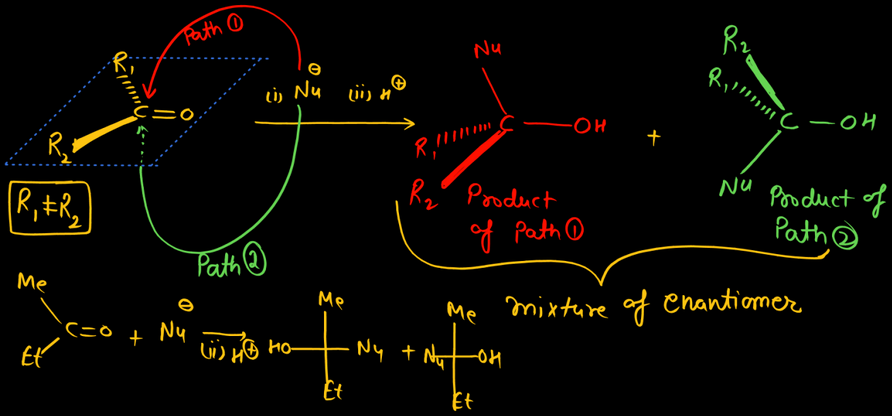 Path ①
R₁
C=O
R₂
(i) Nu⊖ (ii) H⊕
R₁ ≠ R₂
Path ②
Nu
C—OH
R₁
R₂
Product
of Path ①
+
R₂
R₁
C—OH
Nu
Product of
Path ②
mixture of enantiomer
Me
C=O
Et
+ Nu⊖
(ii) H⊕
Me
HO Nu
Et
+
Me
Nu OH
Et